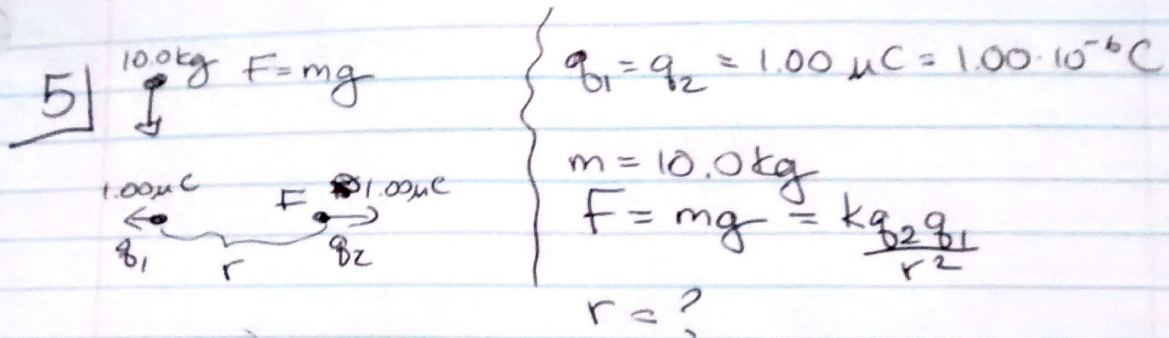 5| 10.0kg F=mg
1.00μC F 1.00μC
q₁ r q₂
q₁ = q₂ = 1.00 μC = 1.00·10⁻⁶ C
m = 10.0 kg
F = mg = kq₂q₁/r²
r = ?